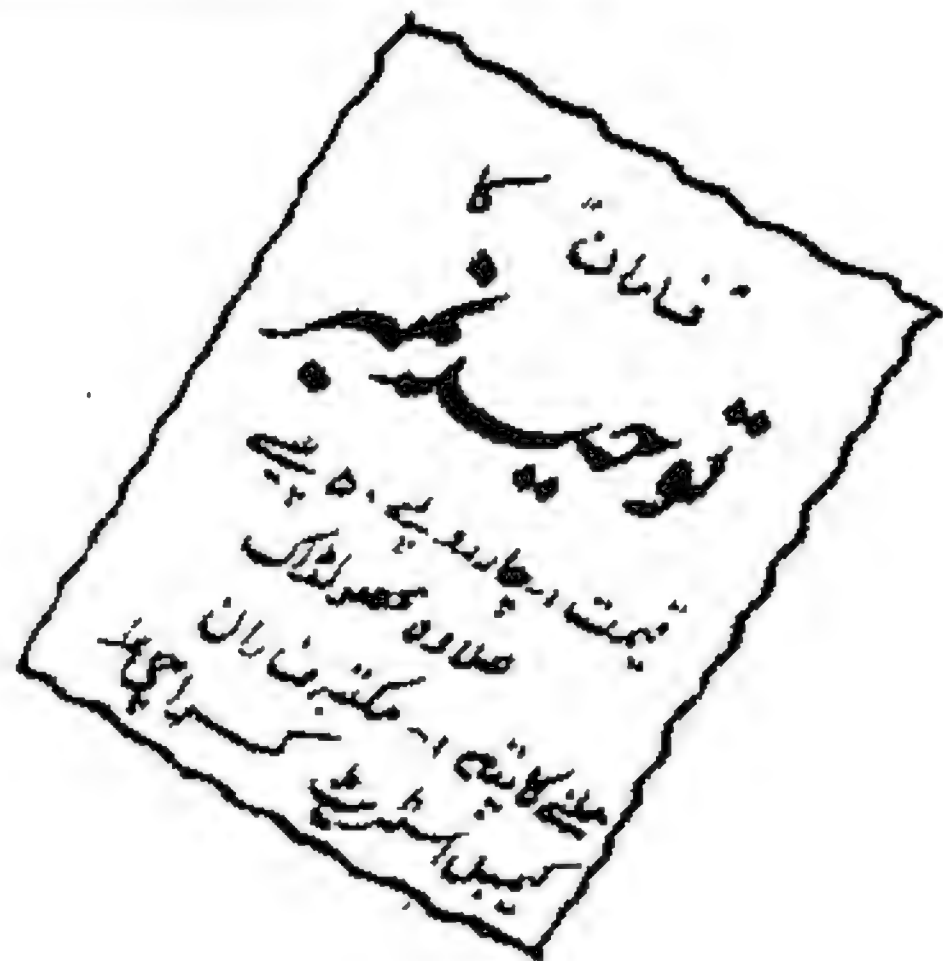 "فاران" کا
توحید نمبر
قیمت :- چار روپے ۵۰ پیسے
علاوہ محصول ڈاک
ملنے کا پتہ :- مکتبہ فاران
کیمبل اسٹریٹ کراچی ۱